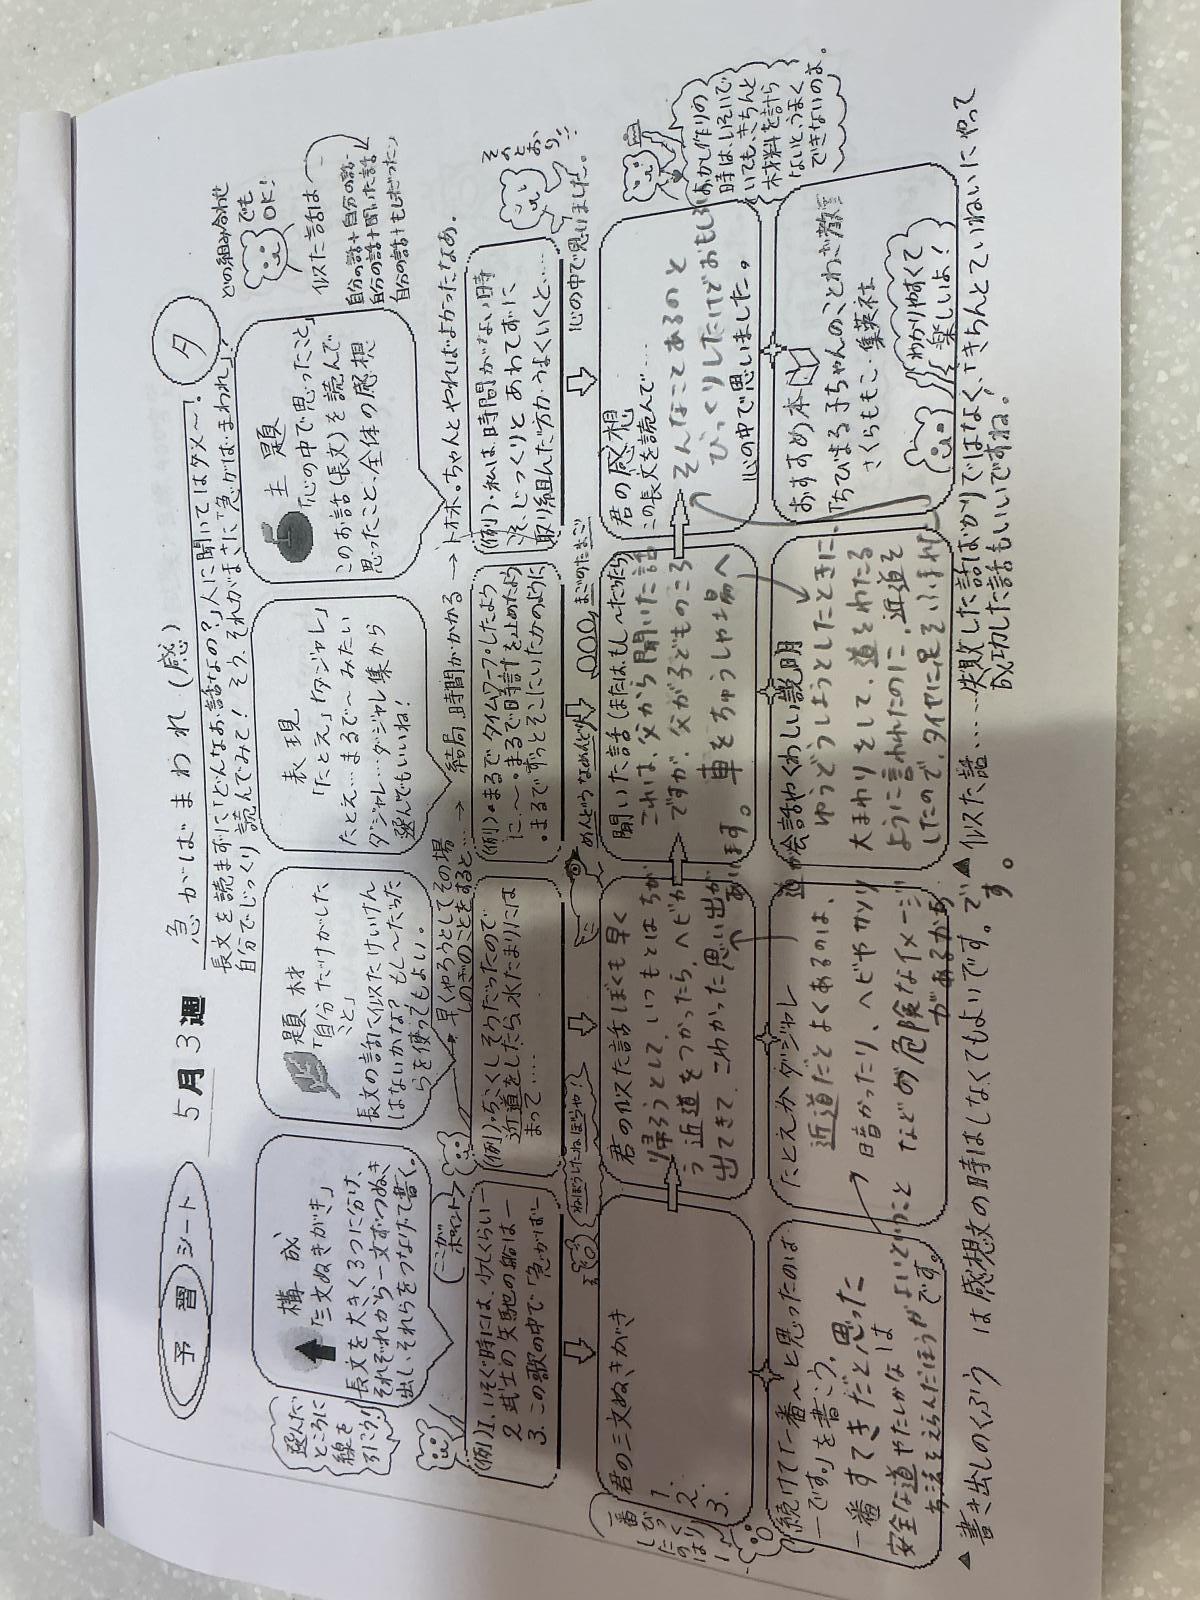 予習シート
5月3週
急がばまわれ(感)
夕
長文を読まずに「どんなお話なの?」人に聞いてはダメ〜!
自分でじっくり読んでみて!そう、それがまさに「急がばまわれ」!
どの組み合わせ
でも
OK!
似た話は
自分の話+自分の話
自分の話+聞いた話
自分の話+もしだったら
選んだ
ところに
線を
引こう!
構成
「三文ぬきがき」
長文を大きく3つに分け、
それぞれから一文ずつぬき
出し、それらをつなげて書く。
題材
「自分だけがした
こと」
長文の話に似たけいけん
はないかな?もし〜だった
らを使ってもよい。
表現
「たとえ」「ダジャレ」
たとえ…まるで〜みたい
ダジャレ…ダジャレ集から
選んでもいいね!
主題
「心の中で思ったこと」
このお話(長文)を読んで
思ったこと、全体の感想
ここが
ポイント
早くやろうとしてその場
しのぎのことをすると…
→ 結局、時間がかかる →
ちゃんとやればよかったなあ。
(例)1. いそぐ時には、少しくらい−
2. 武士の矢馳の船は−
3. この歌の中で「急がば−
(例)・ちこくしそうだったので
近道をしたら、水たまりには
まって……
(例)・まるでタイムワープしたよう
に〜・まるで時計を止めたよう
・まるでずっとそこにいたかのように
(例)・私は、時間がない時
ほど、じっくりとあわてずに
取り組んだ方がうまくいくと……
心の中で思いました。
その
とおり!!
ねぼうしたねぼうや!
めんどうなめんどり
まごのたまご
一番
びっくり
したの
は
君の三文ぬきがき
1.
2.
3.
君の似た話 ぼくも早く
帰ろうとして、いつもとはちが
う近道をつかったら、ヘビが
出てきて、こわかった思い出が
あります。
聞いた話(または、もし〜だったら)
これは、父から聞いた話
ですが、父が子どものころ
車をちゅうしゃ場へ
君の感想
この長文を読んで…
そんなことあるのと
びっくりしたけどおもしろ
心の中で思いました。
おかし作りの
時は、いそいで
いても、きちんと
材料を計ら
ないと、うまく
できないのよ。
続けて「一番〜と思ったのは
−です。」を書こう。
一番すてきだと思った
のは
安全な道やたしかな
方法をえらんだほうがよいということ
です。
たとえかダジャレ
近道だとよくあるのは、道が
暗かったり、ヘビや
などの危険なイメージ
があるから
です。
会話やくわしい説明
ゆうどうしようとしたときに、
大まわりをして、道をわたる
ように言われたのに、近道を
したので、タイヤに足をひかれ
おすすめ本
「ちびまる子ちゃんのことわざ教室」
さくらももこ 集英社
わかりやすくて
楽しいよ!
▲書き出しのくふうは感想文の時はしなくてもよいです。
▲似た話……失敗した話ばかりではなく、「きちんとていねいにやって
成功した話もいいですね。